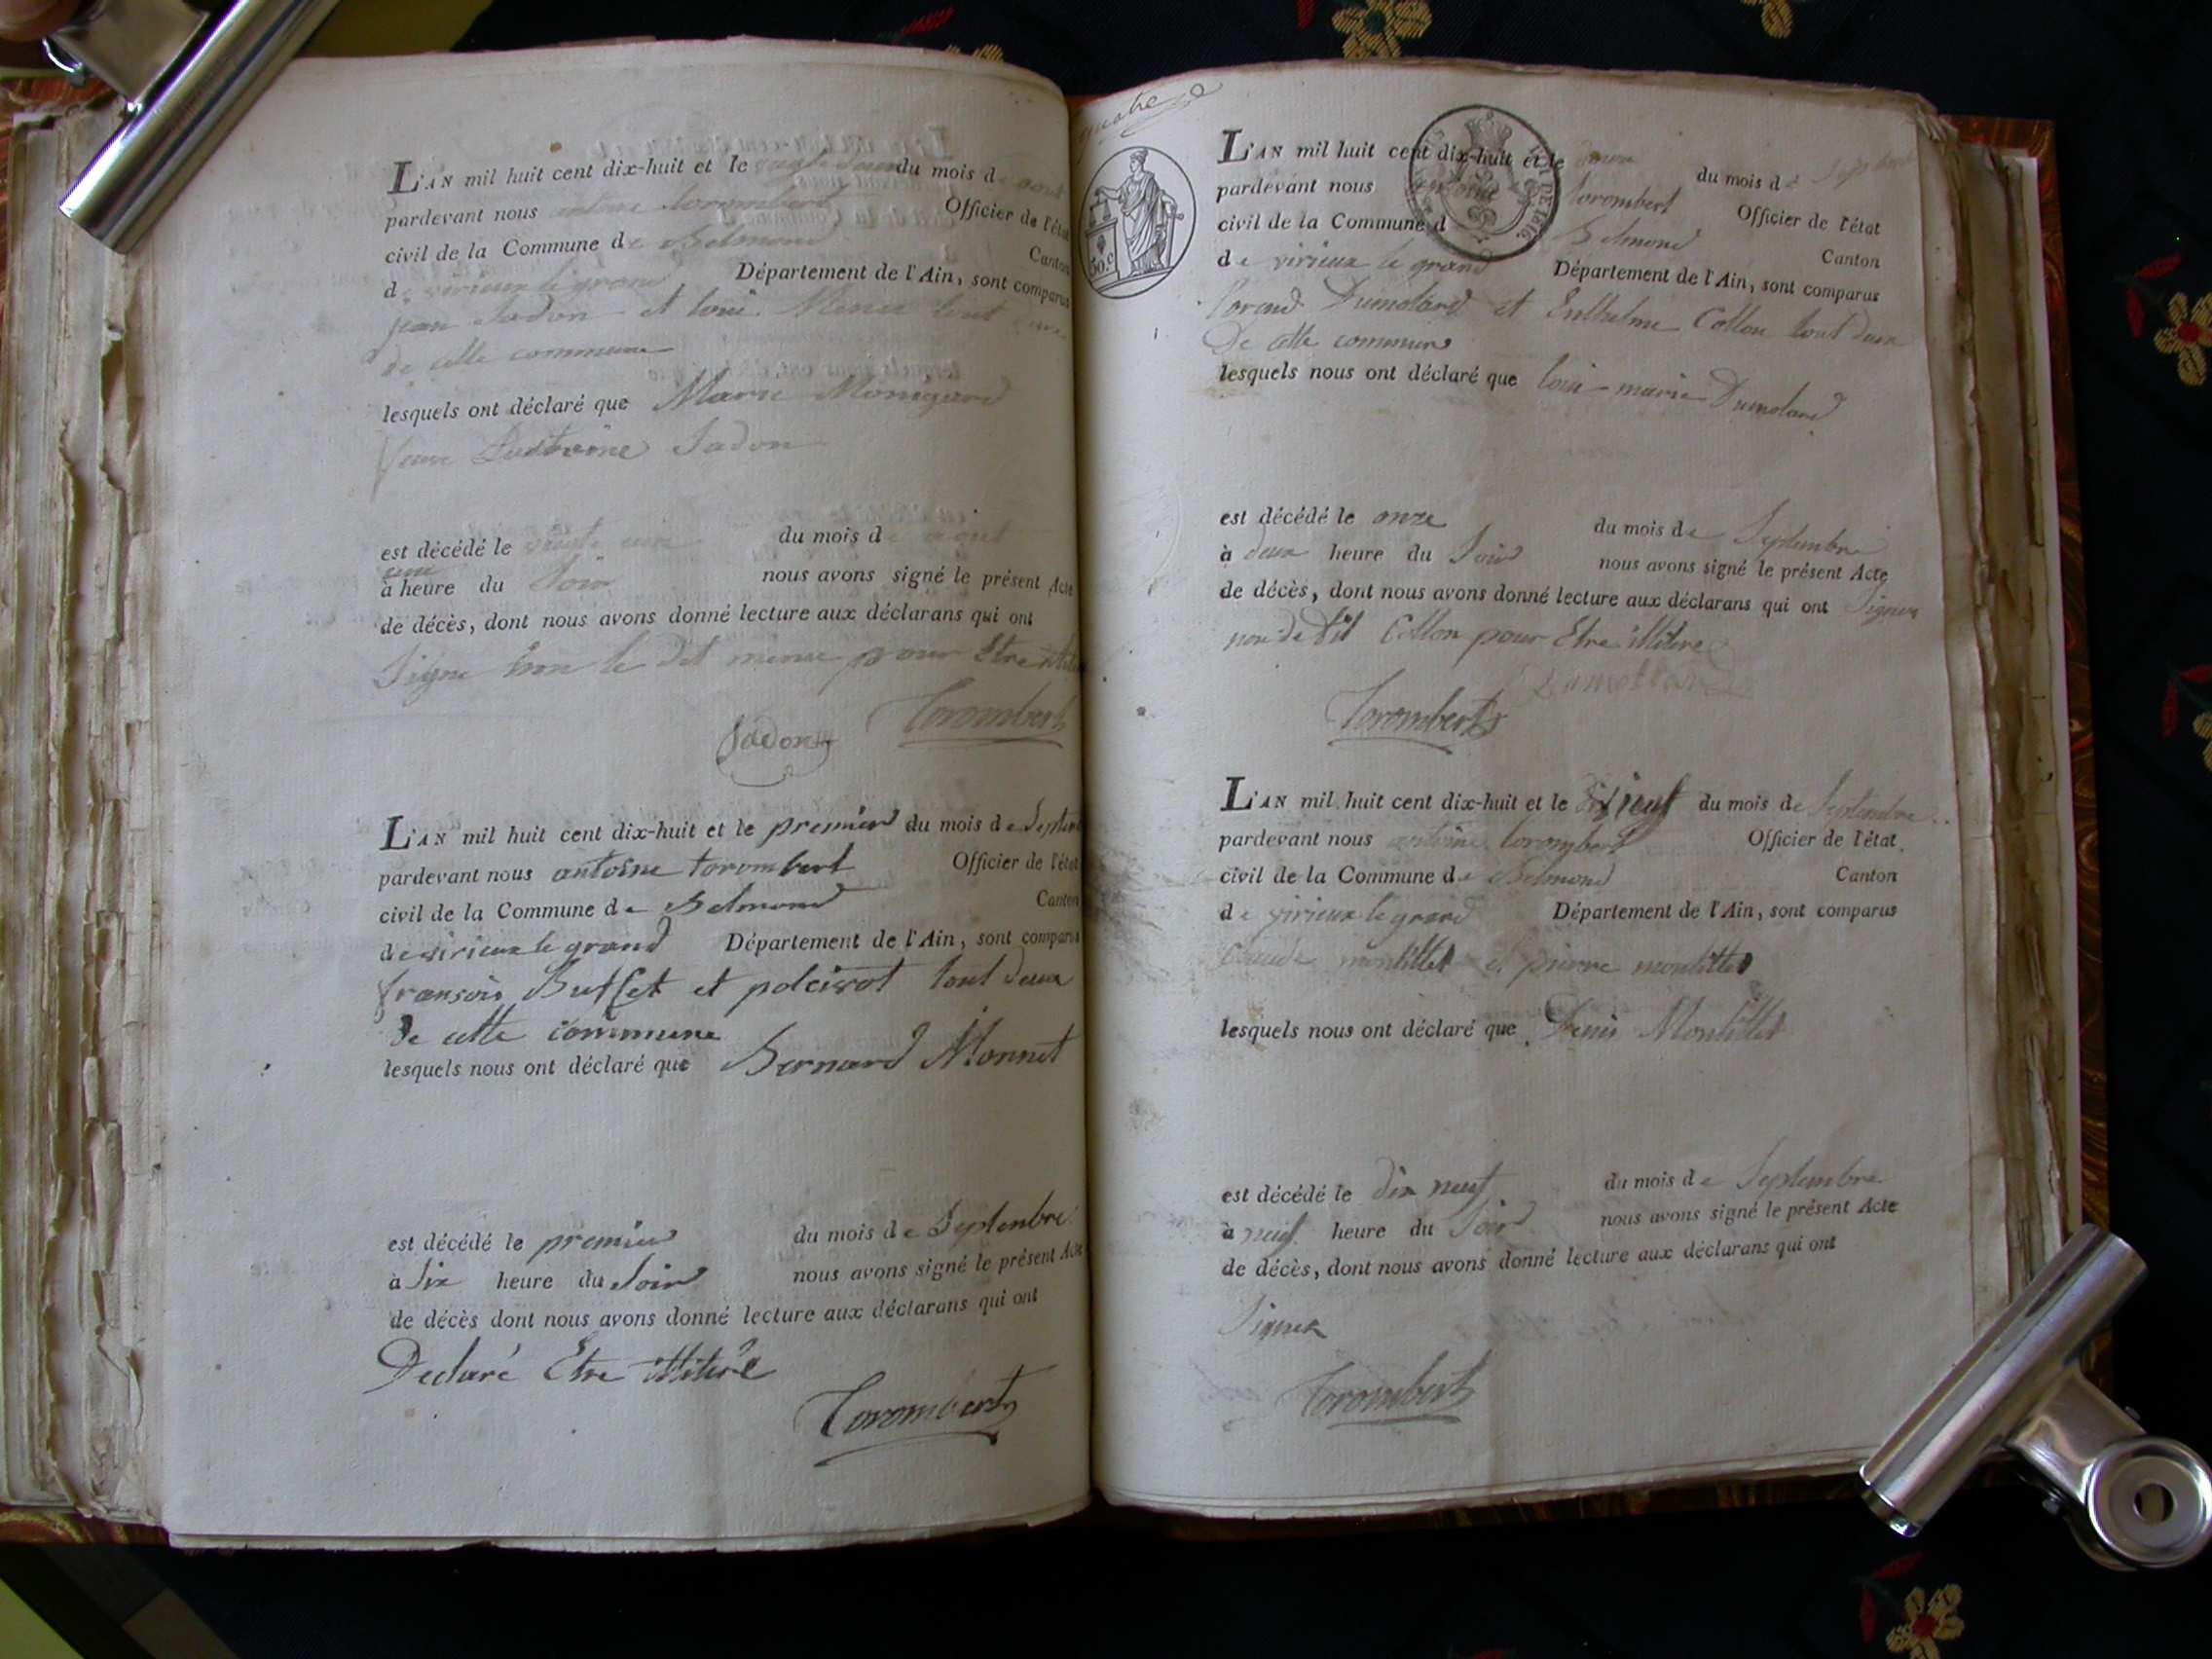 L'AN mil huit cent dix-huit et le vingt deux du mois de aout
pardevant nous antoine torombert Officier de l'état
civil de la Commune de Belmond Canton
de virieux le grand Département de l'Ain, sont comparus
jean Jadon et loui Menu tout deux
de cette commune
lesquels ont déclaré que Marie Monigard
Jadon
est décédé le vingt une du mois de aout
une
à heure du Soir nous avons signé le présent Acte
de décès, dont nous avons donné lecture aux déclarans qui ont
Signe non le dit menu pour Etre
Torombert
Jadon
L'AN mil huit cent dix-huit et le premier du mois de Septem
pardevant nous antoine torombert Officier de l'état
civil de la Commune de Belmond Canton
de virieux le grand Département de l'Ain, sont comparus
fransois Buffet et tout deux
de cette commune
lesquels nous ont déclaré que Bernard Monnet
est décédé le premier du mois de Septembre
à Six heure du Soir nous avons signé le présent Acte
de décès dont nous avons donné lecture aux déclarans qui ont
Declaré Etre illitéré
Torombert
quatre
50 c
L'AN mil huit cent dix-huit et le douze du mois de Septembre
pardevant nous antoine torombert Officier de l'état
civil de la Commune d Belmond
de virieux le grand Canton
Département de l'Ain, sont comparus
Dumolard et Enthelme Collon tout deux
De cette commune
lesquels nous ont déclaré que loui-marie Dumolard
est décédé le onze du mois de Septembre
à deux heure du Soir nous avons signé le présent Acte
de décès, dont nous avons donné lecture aux déclarans qui ont Signer
non de dit Collon pour Etre illitere
Dumollard
Torombert
L'AN mil huit cent dix-huit et le du mois de Septembre
pardevant nous antoine torombert Officier de l'état
civil de la Commune de Belmond Canton
de virieux le grand Département de l'Ain, sont comparus
Claude montillet et pierre montillet
lesquels nous ont déclaré que Denis Montillet
est décédé le dix neuf du mois de Septembre
à neuf heure du Soir nous avons signé le présent Acte
de décès, dont nous avons donné lecture aux déclarans qui ont
Signer
Torombert